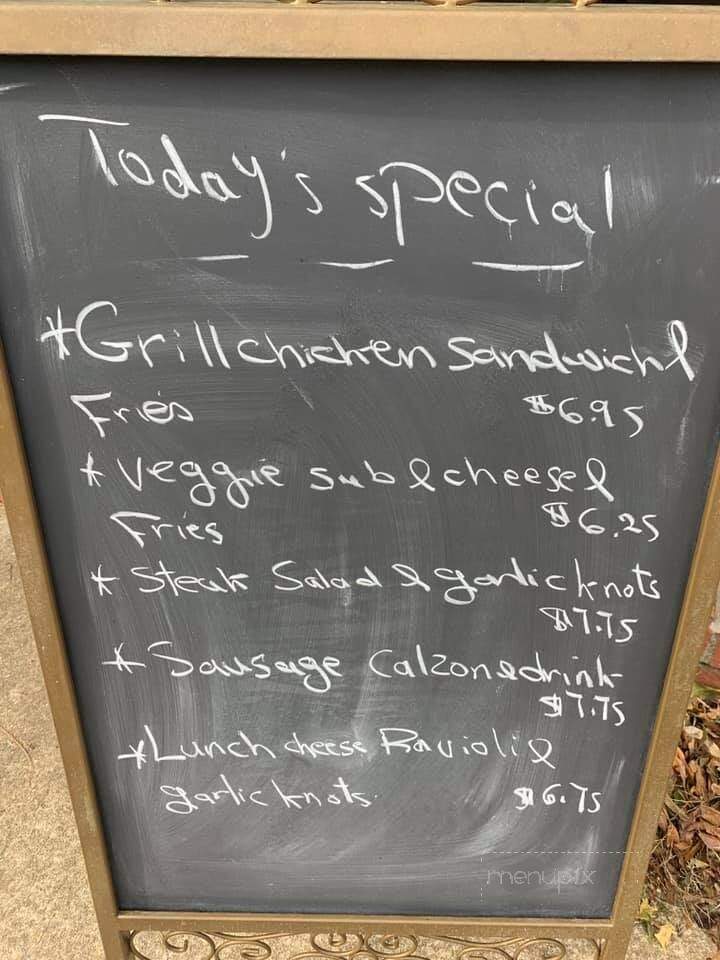 Today's special
*Grill chicken sandwich &
Fries $6.95
*veggie sub & cheese &
Fries $6.25
*Steak Salad & garlic knots
$7.75
*Sausage Calzone & drink
$7.75
*Lunch cheese Ravioli &
garlic knots $6.75
menupix